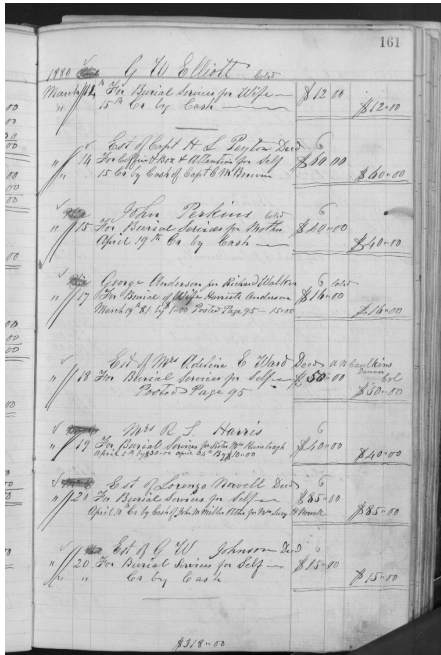 161
1880 G W Elliott Cold
March 14th For Burial Services for Wife $12 00
" 15th Cr by Cash $12 00
Est of Capt H L Peyton Decd 6
" 14 For Coffin & Box & Attention for Self $60 00
" 15 Cr by Cash of Capt C M $60 00
John Perkins Cold 6
" 15 For Burial Services for Mother $40 00
April 19th Cr by Cash $40 00
George Anderson for Richard Walton 6 Cold
" 17 For Burial of Wife Harriete Anderson $16 00
March 19th 81 by 1 00 Posted Page 95 15 00 $16 00
Est of Mrs Adeline E Ward Decd
" 18 For Burial Services for Self $50 00 Col
Posted Page 95 $50 00
Mrs R L Harris 6
" 19 For Burial Services for Sister Mrs $40 00
April by $30 00 $10 00 $40 00
Est of Lorenzo Norvell Decd 6
" 20 For Burial Services for Self $85 00
April Cr by Cash of John M Miller for Mrs Lucy Norvell $85 00
Est of G W Johnson Decd 6
" 20 For Burial Services for Self $15 00
" " Cr by Cash $15 00
$318 00